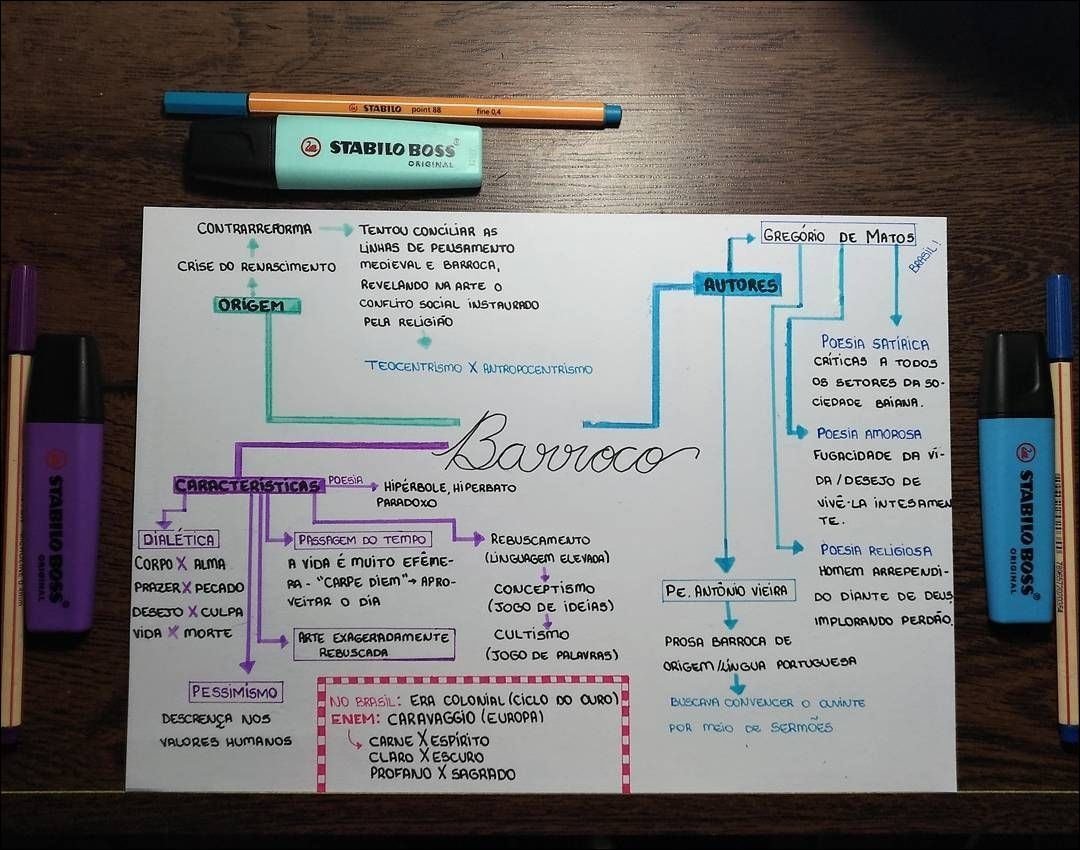 STABILO point 88 fine 0,4
STABILO BOSS
ORIGINAL
CONTRARREFORMA
CRISE DO RENASCIMENTO
ORIGEM
TENTOU CONCILIAR AS
LINHAS DE PENSAMENTO
MEDIEVAL E BARROCA,
REVELANDO NA ARTE O
CONFLITO SOCIAL INSTAURADO
PELA RELIGIÃO
TEOCENTRISMO X ANTROPOCENTRISMO
AUTORES
GREGÓRIO DE MATOS
BRASIL!
POESIA SATÍRICA
CRÍTICAS A TODOS
OS SETORES DA SO-
CIEDADE BAIANA.
POESIA AMOROSA
FUGACIDADE DA VI-
DA/DESEJO DE
VIVÊ-LA INTESAMEN
TE.
POESIA RELIGIOSA
HOMEM ARREPENDI-
DO DIANTE DE DEUS,
IMPLORANDO PERDÃO.
PE. ANTÔNIO VIEIRA
PROSA BARROCA DE
ORIGEM/LÍNGUA PORTUGUESA
BUSCAVA CONVENCER O OUVINTE
POR MEIO DE SERMÕES
Barroco
CARACTERÍSTICAS
POESIA
HIPÉRBOLE, HIPERBATO
PARADOXO
DIALÉTICA
CORPO X ALMA
PRAZER X PECADO
DESEJO X CULPA
VIDA X MORTE
PASSAGEM DO TEMPO
A VIDA É MUITO EFÊME-
RA - "CARPE DIEM" → APRO-
VEITAR O DIA
ARTE EXAGERADAMENTE
REBUSCADA
REBUSCAMENTO
(LINGUAGEM ELEVADA)
CONCEPTISMO
(JOGO DE IDEIAS)
CULTISMO
(JOGO DE PALAVRAS)
PESSIMISMO
DESCRENÇA NOS
VALORES HUMANOS
NO BRASIL: ERA COLONIAL (CICLO DO OURO)
ENEM: CARAVAGGIO (EUROPA)
CARNE X ESPÍRITO
CLARO X ESCURO
PROFANO X SAGRADO
STABILO BOSS
ORIGINAL
STABILO BOSS
ORIGINAL